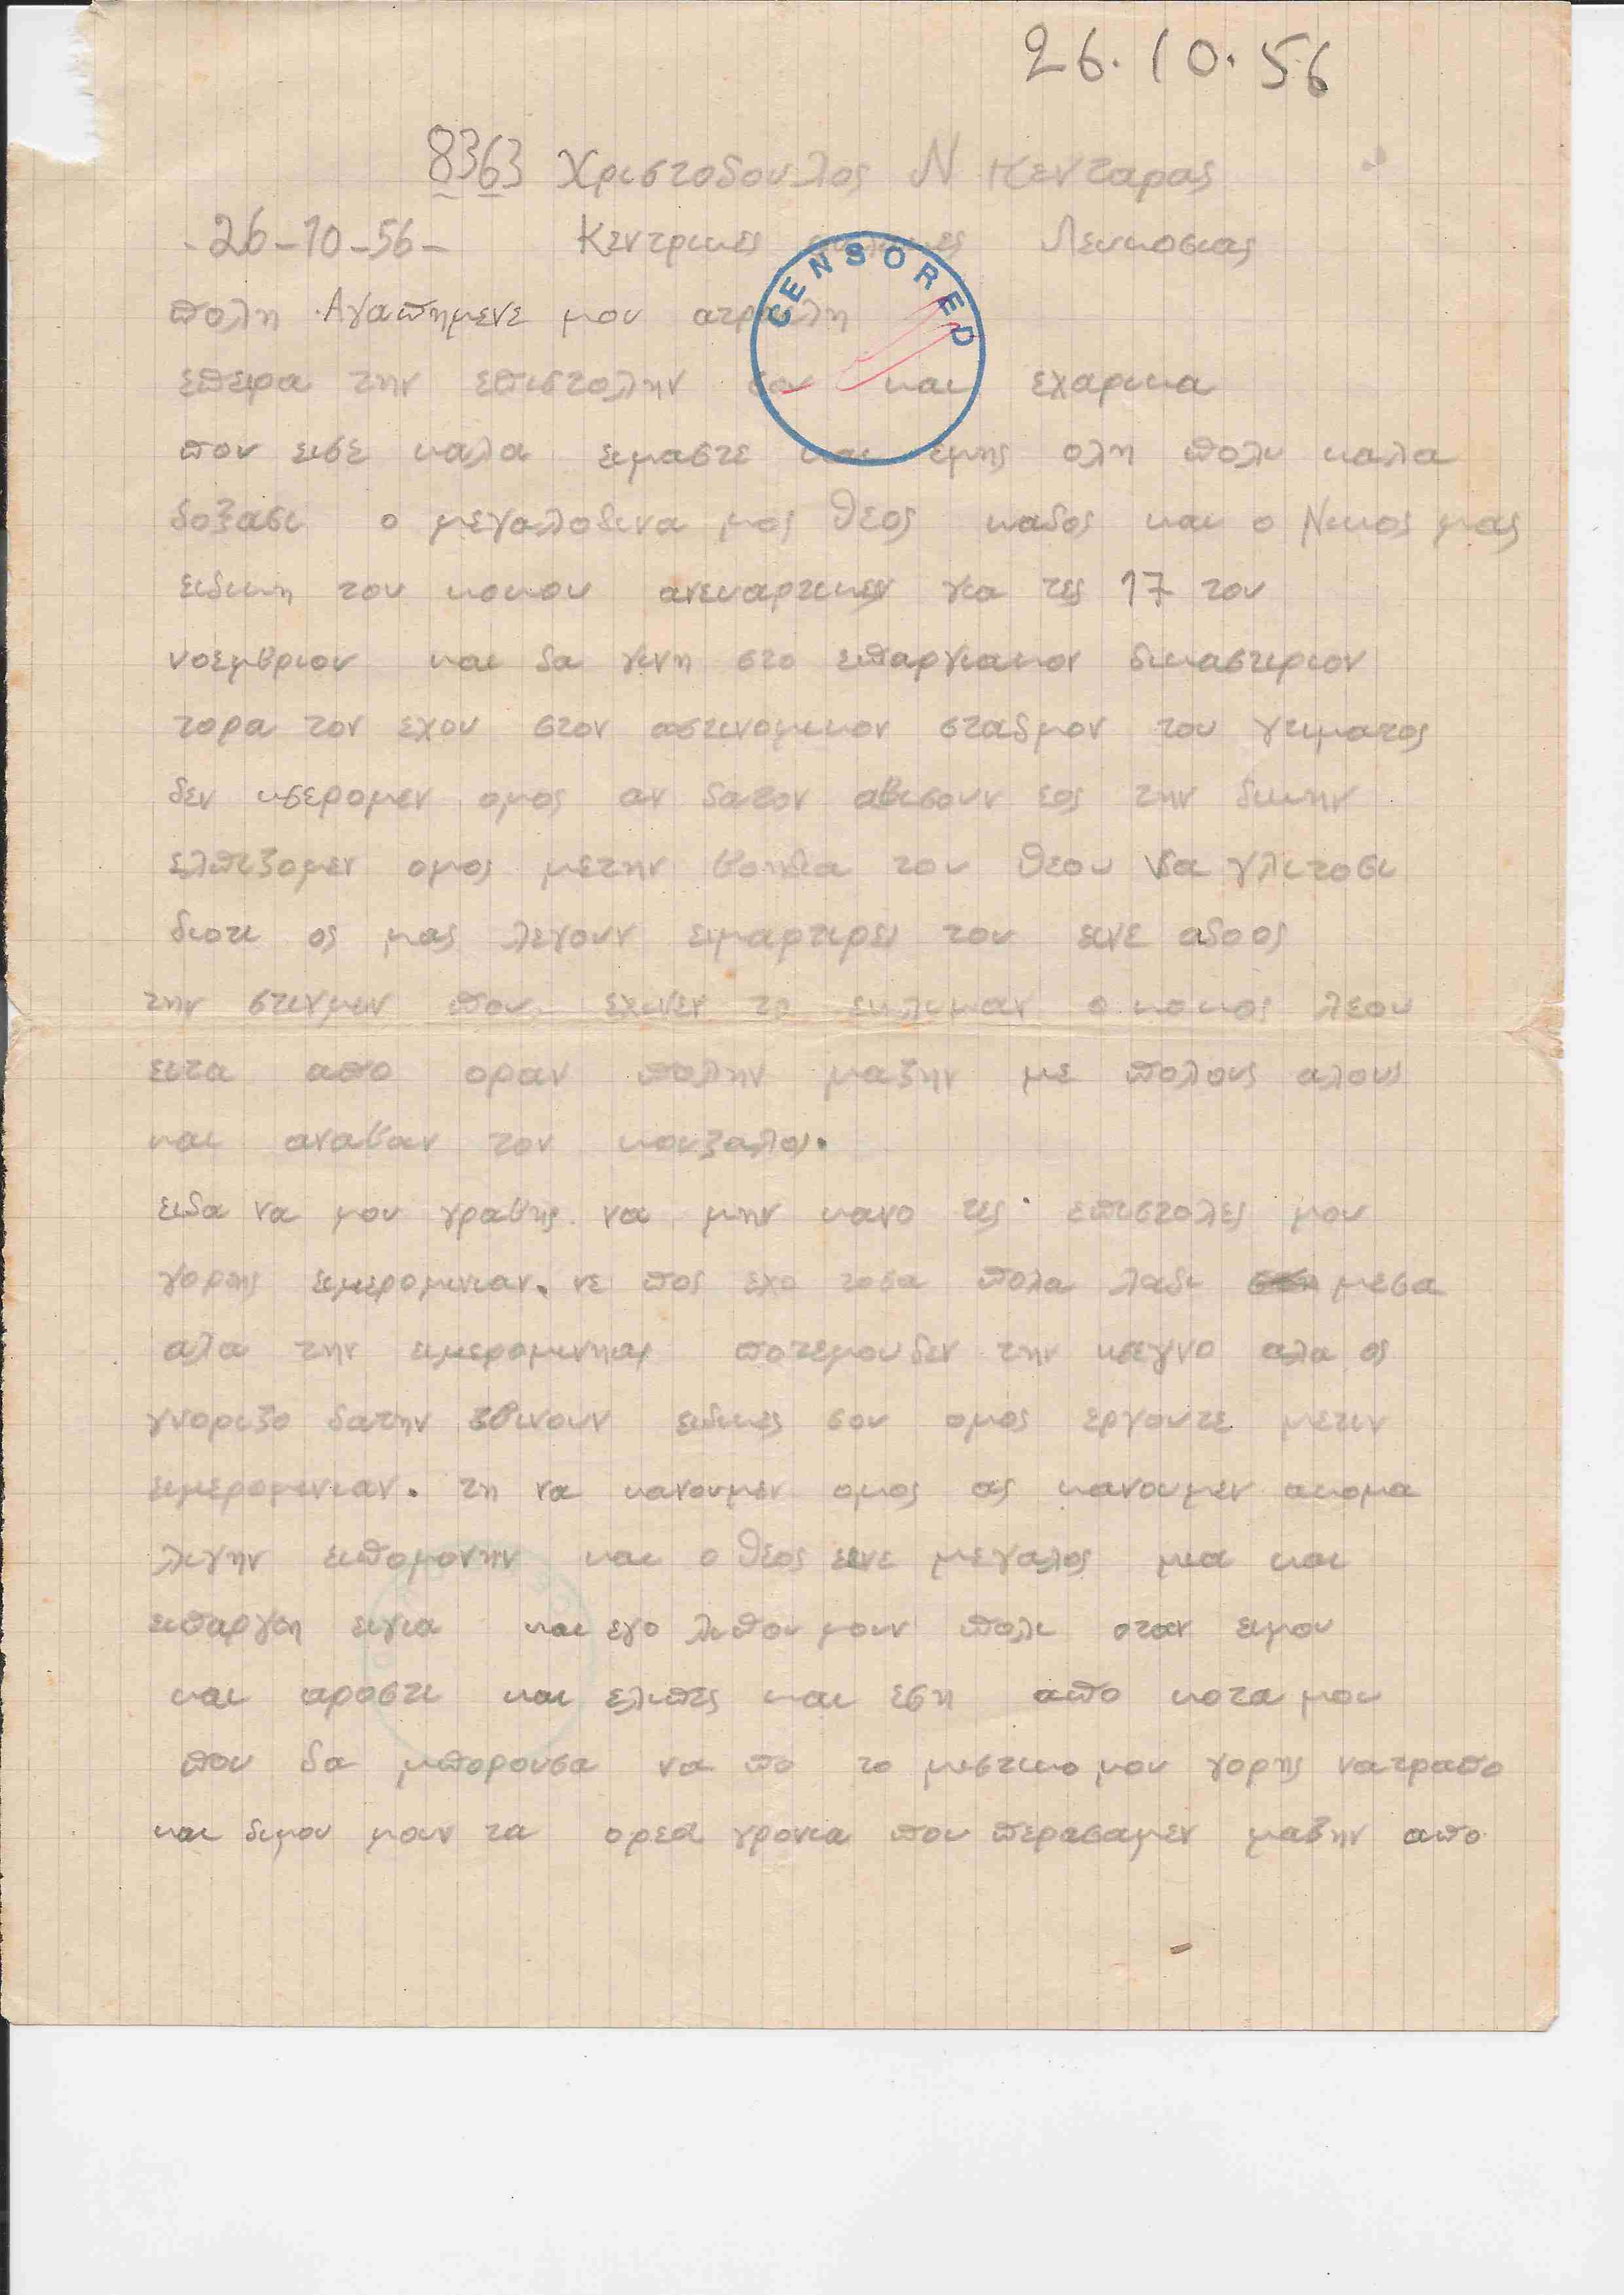 26.10.56
8363 Χριστοδουλος Ν πενταρας
-26-10-56- Κεντρικες φυλακες Λευκοσιας
CENSORED
πολη Αγαπημενε μου
επειρα την επιστολην σου και εχαρικα
που εισε καλα ειμαστε και εμης ολη πολυ καλα
δοξασι ο μεγαλοδινα μος θεος καδος και ο Νικος μας
ειδικη του κοκου ανεκαρτικεν για τες 17 του
νοεμβριου και δα γινη στο επαργιακον δικαστιριον
τορα τον εχου στον αστινομικον σταδμον του γτιματος
δεν κσερομεν ομος αν δατον αβισουν εος την δικην
ελπιζομεν ομος μετην βοηδια του θεου δα γλιτοσι
διοτι ος μας λεγουν ειμαρτιρες του εινε αδοος
την στιγμιν που το ο κοκος λεου
ειτα απο οραν πολην μαζην με πολους αλους
και αναβαν τον
ειδα να μου γραβης να μην κανο τες επιστολες μου
γορης ειμερομινιαν. νε πος εχο τοσα πολα λαδι μεσα
αλα την ειμερομινηαν ποτεμου δεν την κσεγνο αλα ος
γνοριζο δατην σβινουν ειδικες σου ομος εργουντε μετιν
ειμερομινιαν. τη να κανουμεν ομος ας κανουμεν ακομα
λιγην ειπομονην και ο θεος εινε μεγαλος μια και
ειπαργη ειγια και εγο λιπου μουν πολι οταν ειμου
και αροστι και ελιπες και εση απο κοτα μου
που δα μπορουσα να πο το μιστικο μου γορης νατραπο
και διμου μουν τα ορεα γρονια που περασαμεν μαζην απο